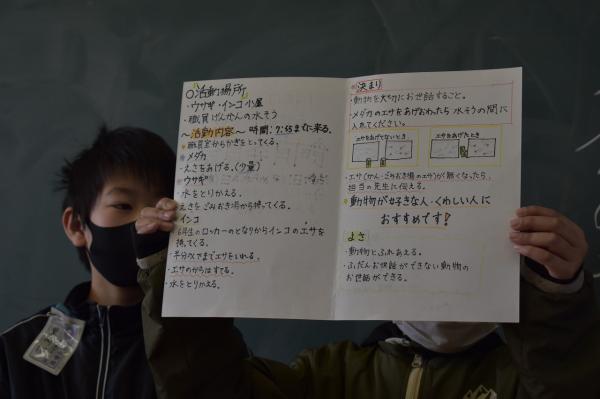 ○活動場所
・ウサギ・インコ小屋
・職員げんかんの水そう
～活動内容～ 時間:7:55までに来る。
職員室からかぎをとってくる。
メダカ
・えさをあげる。(少量)
ウサギ
・水をとりかえる。
えさをごみおき場から持ってくる。
インコ
6年生のロッカーのとなりからインコのエサを
持ってくる。
・半分以下までエサをいれる。
・エサのからはすてる。
・水をとりかえる。
決まり
・動物を大切にお世話すること。
・メダカのエサをあげおわったら水そうの間に
入れてください。
エサをあげてないとき
エサをあげたとき
・エサ(かん・ごみおき場のエサ)が無くなったら、
担当の先生に伝える。
動物が好きな人・くわしい人に
おすすめです!
よさ
・動物とふれあえる。
・ふだんお世話ができない動物の
お世話ができる。